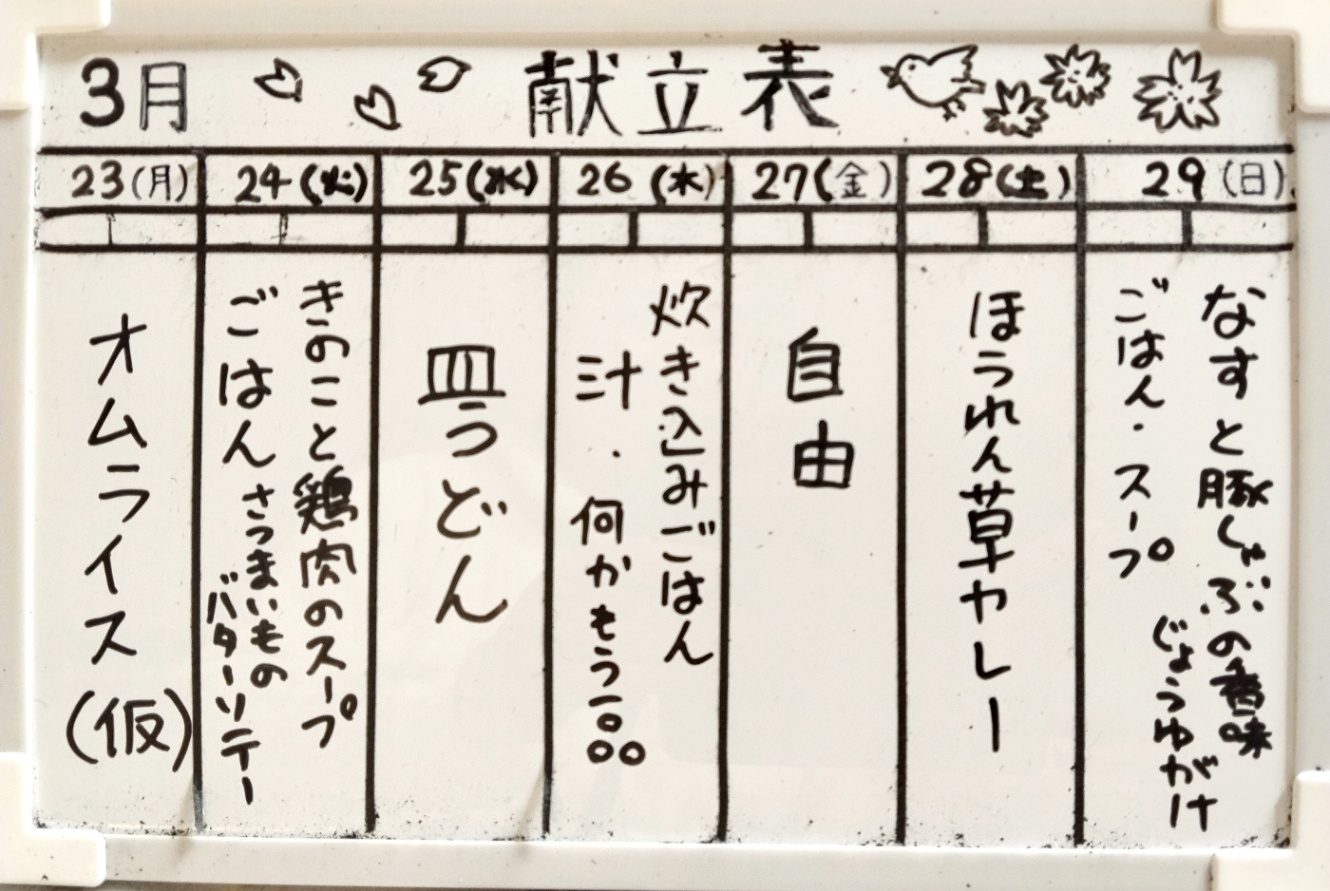 3月 献立表
23(月)
24(火)
25(水)
26(木)
27(金)
28(土)
29(日)
オムライス
(仮)
きのこと鶏肉のスープ
ごはん
さつまいもの
バターソテー
皿うどん
炊き込みごはん
汁・何かもう一品
自由
ほうれん草カレー
なすと豚しゃぶの香味
じょうゆがけ
ごはん・スープ